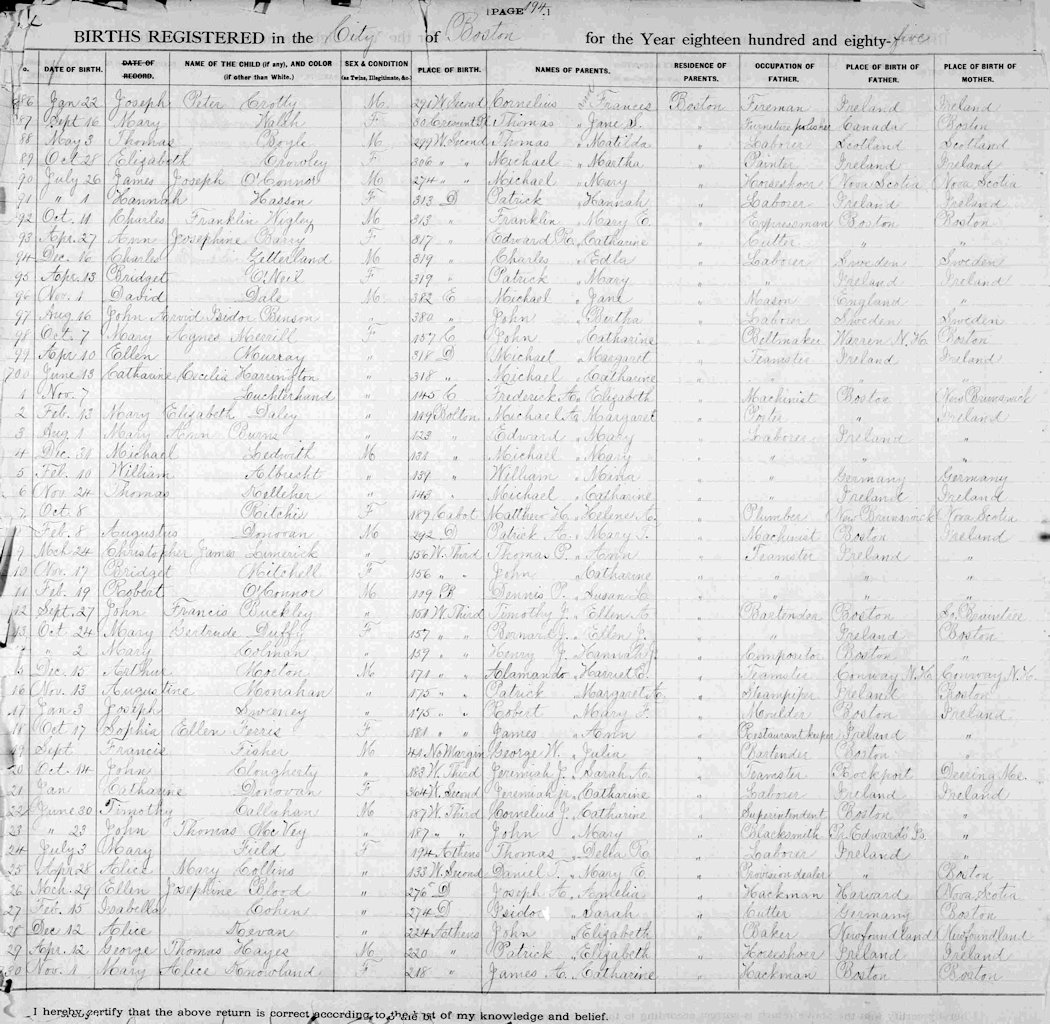 [PAGE 194.]
BIRTHS REGISTERED in the City of Boston for the Year eighteen hundred and eighty-five
No. DATE OF BIRTH. DATE OF RECORD. NAME OF THE CHILD (if any), AND COLOR (if other than White.) SEX & CONDITION (as Twins, Illegitimate, &c.) PLACE OF BIRTH. NAMES OF PARENTS. RESIDENCE OF PARENTS. OCCUPATION OF FATHER. PLACE OF BIRTH OF FATHER. PLACE OF BIRTH OF MOTHER.
686 Jan 22 Joseph Peter Crotty M 291 W. Second Cornelius and Frances Boston Fireman Ireland Ireland
87 Sept 16 Mary Walsh F 30 Crescent Pl Thomas " Jane S. " Furniture polisher Canada Boston
88 May 3 Thomas Boyle M 299 W. Second Thomas " Matilda " Laborer Scotland Scotland
89 Oct 28 Elizabeth Crowley F 306 " " Michael " Martha " Printer Ireland Ireland
90 July 26 James Joseph O'Connor M 274 " " Michael " Mary " Horseshoer Nova Scotia Nova Scotia
91 " 1 Hannah Hasson F 313 D Patrick " Hannah " Laborer Ireland Ireland
92 Oct. 11 Charles Franklin Wigley M 313 " Franklin " Mary E. " Expressman Boston Boston
93 Apr. 27 Ann Josephine Barry F 317 " Edward R. " Catharine " Cutter " "
94 Dec. 16 Charles Zetterland M 319 " Charles " Edla " Laborer Sweden Sweden
95 Apr. 13 Bridget O'Neil F 319 " Patrick " Mary " " Ireland Ireland
96 Nov. 1 David Dale M 382 E Michael " Jane " Mason England "
97 Aug 16 John Arvid Isidor Benson " 380 " John " Bertha " Laborer Sweden Sweden
98 Oct. 7 Mary Agnes Merrill F 157 C John " Catharine " Beltmaker Warren N.H. Boston
99 Apr 10 Ellen Murray " 318 D Michael " Margaret " Teamster Ireland Ireland
700 June 13 Catharine Cecilia Harrington " 318 " Michael " Catharine " " " "
1 Nov. 7 Luchterhand " 145 C Frederick A. " Elizabeth " Machinist Boston New Brunswick
2 Feb. 13 Mary Elisabeth Daley " 149 Bolton Michael A. " Margaret " Porter " Ireland
3 Aug 1 Mary Ann Burns " 123 " Edward " Mary " Laborer Ireland "
4 Dec. 31 Michael Ledwith M 131 " Michael " Mary " " " "
5 Feb. 10 William Albrecht " 139 " William " Mina " " Germany Germany
6 Nov. 24 Thomas Kelleher " 143 " Michael " Catharine " " Ireland Ireland
7 Oct. 8 Ritchie " 189 Cabot Matthew H. " Helene A. " Plumber New Brunswick Nova Scotia
Feb. 8 Augustus Donovan M 292 D Patrick A. " Mary J. " Machinist Boston Ireland
9 Mch 24 Christopher James Limerick " 156 W. Third Thomas P. " Ann " Teamster Ireland "
10 Nov. 17 Bridget Mitchell F 156 " " John " Catharine " " " "
11 Feb. 19 Robert O'Connor M 109 B Dennis P. " Susan L. " " " "
12 Sept. 27 John Francis Buckley " 151 W. Third Timothy J. " Ellen A. " Bartender Boston So. Braintree
13 Oct. 24 Mary Gertrude Duffy F 157 " " Bernard J. " Ellen J. " " Ireland Boston
" 2 Mary Colman " 159 " " Henry J. " Hannah J. " Compositor Boston "
15 Dec. 15 Arthur Morton M 171 " " Alamando " Harriet E. " Teamster Conway N.H. Conway N.H.
16 Nov. 13 Augustine Monahan " 175 " " Patrick " Margaret A. " Steampiper Ireland Boston
17 Jan 3 Joseph Sweeney " 175 " " Robert " Mary F. " Moulder Boston Ireland
18 Oct 17 Sophia Ellen Feeris F 181 " " James " Ann " Restaurant keeper Ireland "
19 Sept Francis Fisher M 41 No Margin George W. " Julia " Bartender Boston "
20 Oct. 14 John Clougherty " 183 W. Third Jeremiah J. " Sarah A. " Teamster Rockport Deering Me.
21 Jan Catharine Donovan F 304 W. Second Jeremiah Jr. " Catharine " Laborer Ireland Ireland
22 June 30 Timothy Callahan M 187 W. Third Cornelius J. " Catharine " Superintendent Boston "
23 " 23 John Thomas McVey " 187 " " John " Mary " Blacksmith Pr. Edward's Is. "
24 July 3 Mary Field F 194 Athens Thomas " Delia R. " Laborer Ireland "
25 Apr 28 Alice Mary Collins " 133 W. Second Daniel J. " Mary E. " Provision dealer " Boston
26 Mch. 29 Ellen Josephine Blood " 276 D Joseph A. " Amelia " Hackman Harvard Nova Scotia
27 Feb. 15 Isabella Cohen " 274 D Isidor " Sarah " Cutter Germany Boston
28 Dec 12 Alice Devan " 224 Athens John " Elizabeth " Baker Newfoundland Newfoundland
29 Apr. 12 George Thomas Hayes M 220 " Patrick " Elizabeth " Horseshoer Ireland Ireland
30 Nov. 1 Mary Alice Knowland F 218 " James A. " Catharine " Hackman Boston Boston
I hereby certify that the above return is correct according to the best of my knowledge and belief.